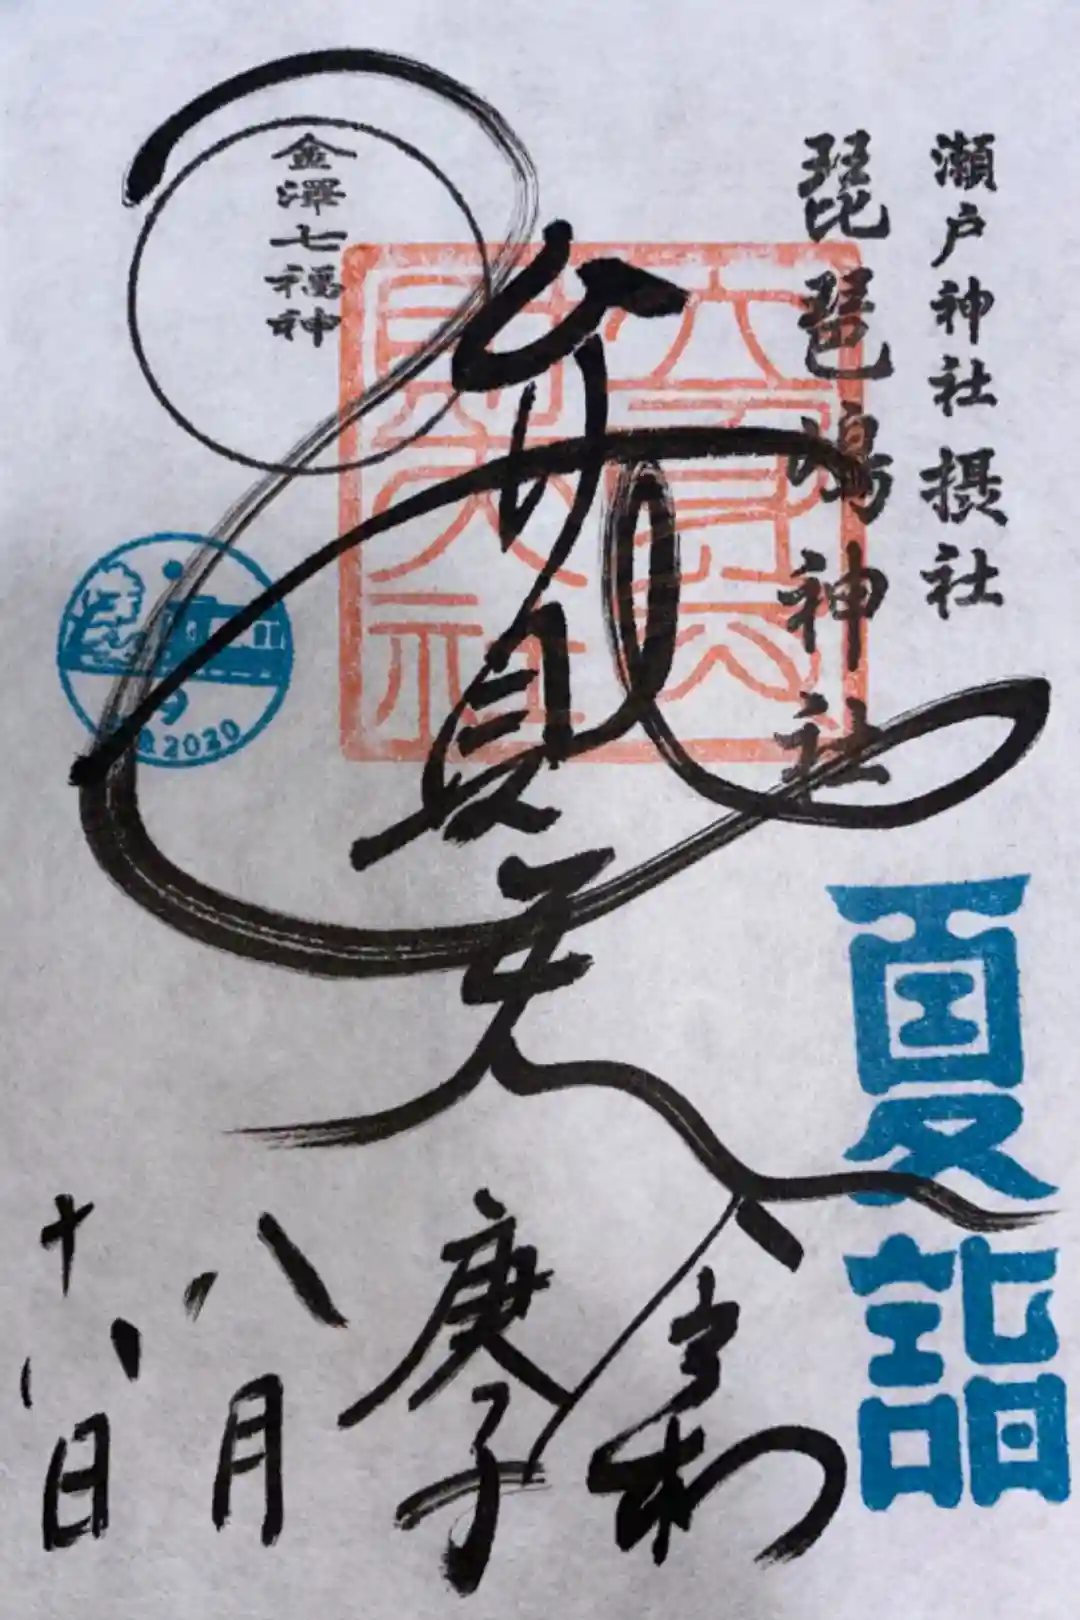 瀬戸神社摂社
琵琶嶋神社
夏詣
金澤七福神
弁財天
令和
庚子
八月
十八日
2020